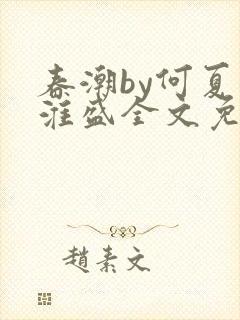 春潮by何夏
淮盛全文免
趙素文